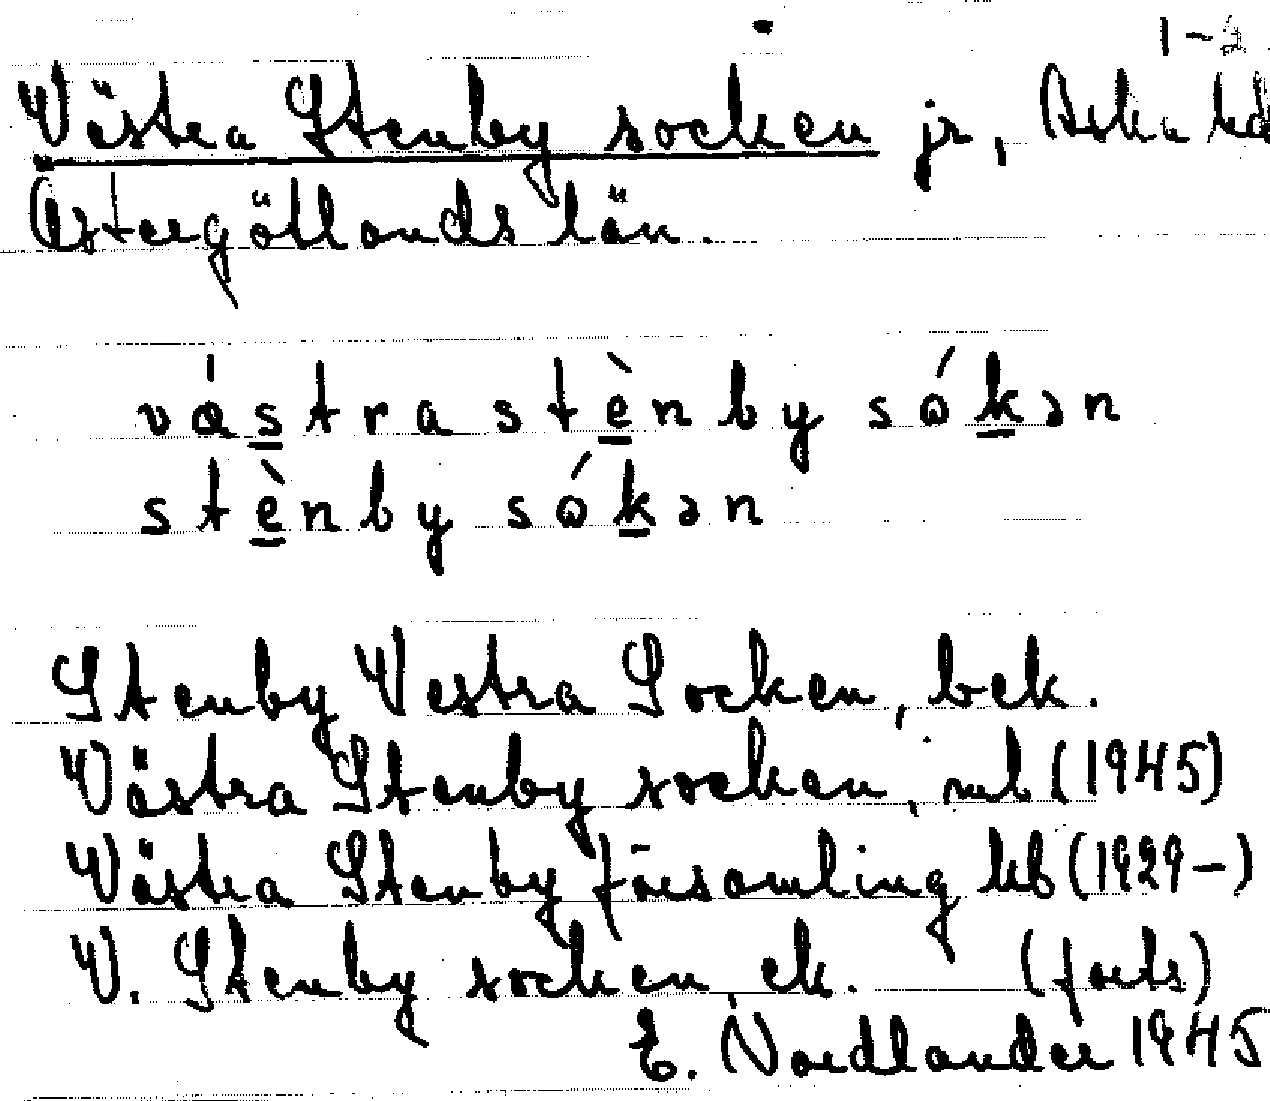 1-2
Västra Stenby socken jr, Aska hd
Östergötlands län.
vástra stènby sókən
stènby sókən
Stenby Vestra Socken, bek.
Västra Stenby socken, mb (1945)
Västra Stenby församling kb (1929-)
V. Stenby socken, ek. (forts)
E. Nordlander 1945